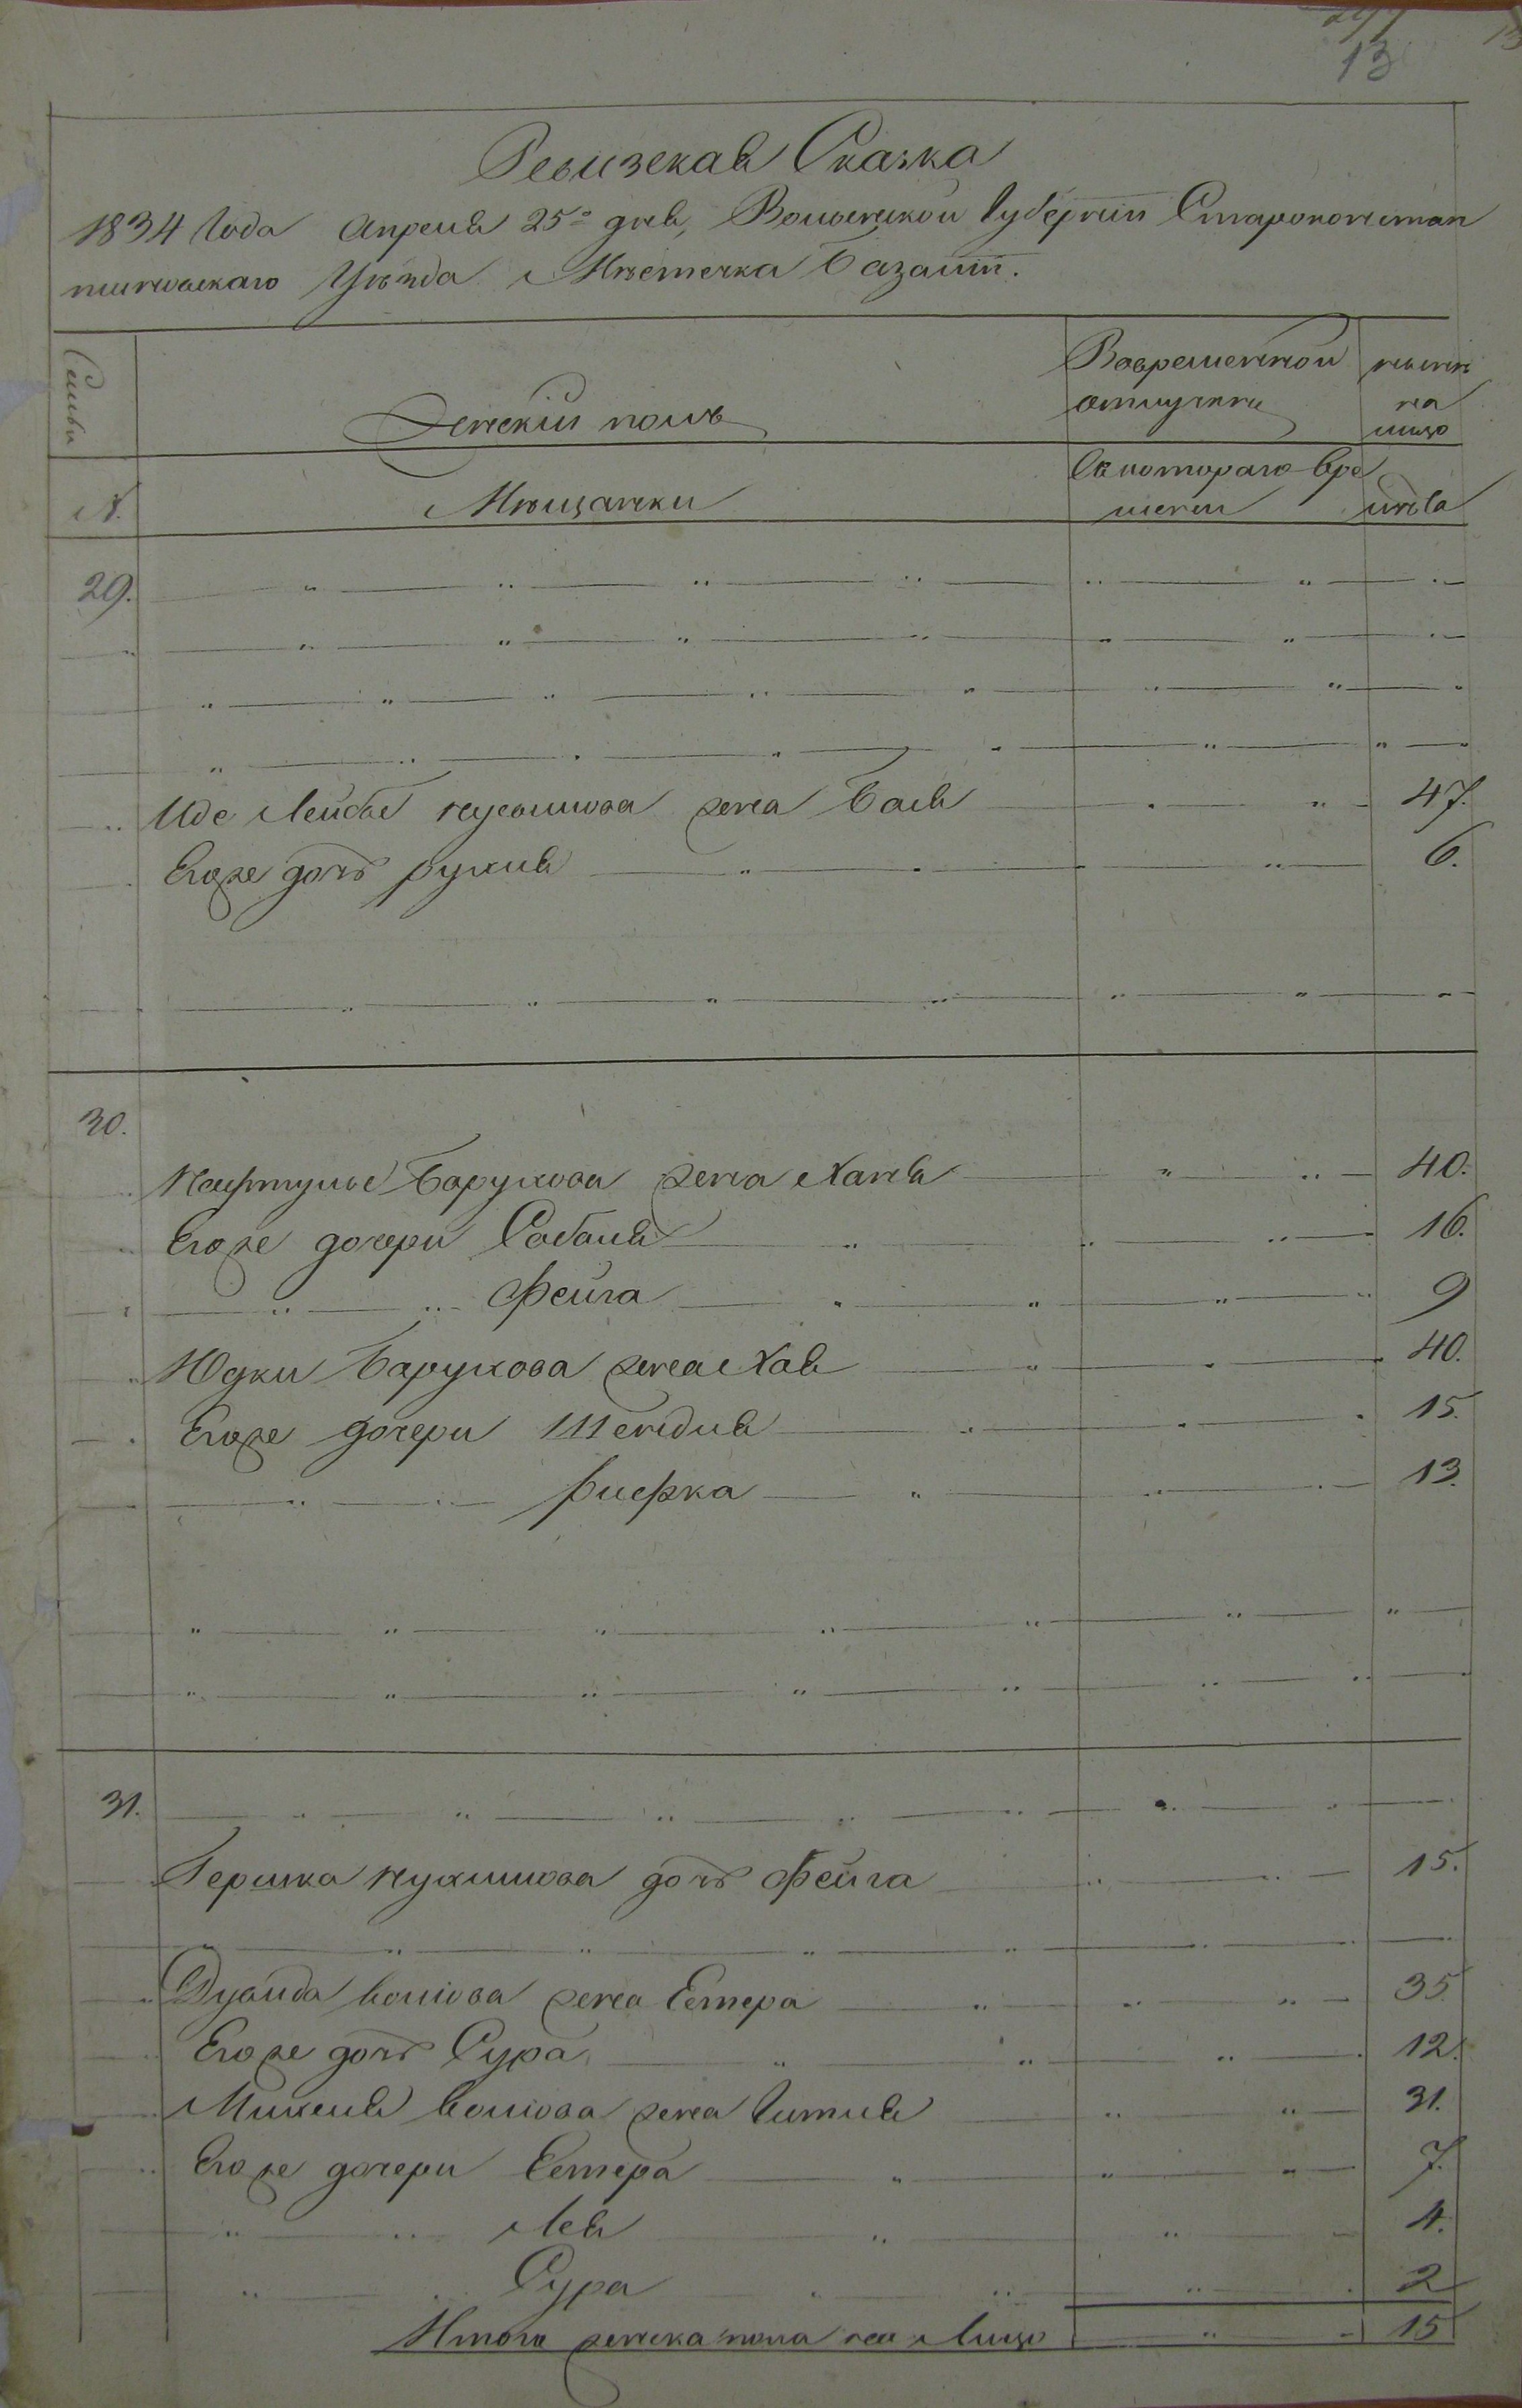 13
Ревизская Сказка
1834 Года Апреля 25го дня, Волынской Губернии Староконстан
тиновскаго Уѣзда Мѣстечка Базалии.
Семьи
Женский полъ
Вовременной нынѣ
отлучки на
лицо
Съ котораго вре
N. Мѣщанки мени лѣта
29.
Иде Лейбы жена Бася 47.
Егоже дочь рухля 6.
30.
Нафтулы Барухова жена Ханя 40.
Егоже дочери 16.
Фейга 9
Юдки Барухова жена Хая 40.
Егоже дочери Шейдля 15.
Рифка 13.
31.
Гершка Нухимова дочь Фейга 15.
жена Естера 35
Егоже дочь Сура 12.
Михеля жена Гитля 31.
Егоже дочери Естера 7.
Лея 4.
Сура 2
Итого женска пола на Лицо 15